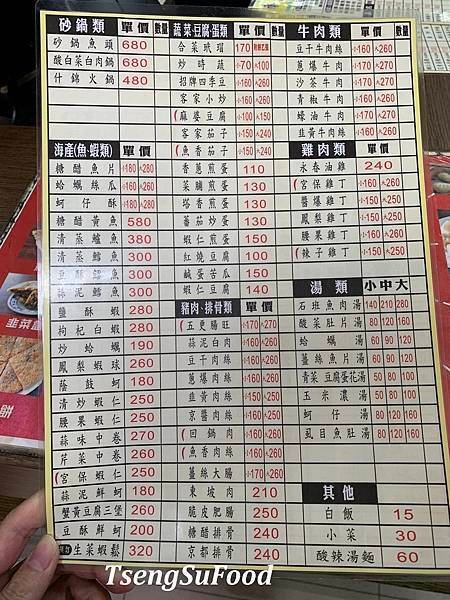 砂鍋類 單價 數量
砂鍋魚頭 680
酸白菜白肉鍋 580
什錦火鍋 480
海產(魚.蝦)類 單價
糖醋魚片 小180 大280
蛤蠣絲瓜 小160 大260
蚵仔酥 小180 大280
糖醋黃魚 580
清蒸鱸魚 300
清蒸鱈魚 300
豆酥鱈魚 300
蒜泥鱈魚 300
鹽酥蝦 280
枸杞白蝦 280
炒蛤蠣 190
鳳梨蝦球 260
蔭豉蚵 180
清炒蝦仁 250
腰果蝦仁 250
蒜味中卷 270
芹菜中卷 260
(宮保蝦仁 250
蒜泥鮮蚵 180
蟹黃豆腐三堡 260
豆酥鮮蚵 200
生菜蝦鬆 320
蔬菜.豆腐.蛋類 單價 數量
合菜玳瑁 170
炒時蔬 小70 大100
招牌四季豆 小160 大260
客家小炒 小160 大260
(麻婆豆腐 小100 大150
客家茄子 小150 大240
(魚香茄子 小150 大240
香蔥煎蛋 110
菜脯煎蛋 130
塔香煎蛋 130
蕃茄炒蛋 130
蝦仁煎蛋 150
紅燒豆腐 150
鹹蛋苦瓜 150
蝦仁豆腐 140
豬肉.排骨類 單價
(五更腸旺 小170 大270
蒜泥白肉 小160 大260
豆干肉絲 小160 大260
蔥爆肉絲 小160 大260
韭黃肉絲 小160 大260
京醬肉絲 小160 大260
(回鍋肉 小160 大260
(魚香肉絲 小160 大260
薑絲大腸 小170 大260
東坡肉 210
脆皮肥腸 250
糖醋排骨 240
京都排骨 240
牛肉類 單價 數量
豆干牛肉絲 小160 大260
蔥爆牛肉 小160 大260
沙茶牛肉 小160 大260
青椒牛肉 小160 大260
蠔油牛肉 小160 大260
韭黃牛肉絲 小160 大260
雞肉類 單價
永春油雞 240
(宮保雞丁 小160 大260
醬爆雞丁 小150 大250
鳳梨雞丁 小150 大250
腰果雞丁 小160 大260
(辣子雞丁 小150 大250
湯類 小 中 大
石斑魚肉湯 140 210 280
酸菜肚片湯 80 120 160
蛤蠣湯 60 90 120
薑絲魚片湯 60 90 120
青菜豆腐蛋花湯 50 80 100
玉米濃湯 50 80 100
蚵仔湯 60 90 120
虱目魚肚湯 80 120 160
其他 單價
白飯 15
小菜 30
酸辣湯麵 60
TsengSuFood